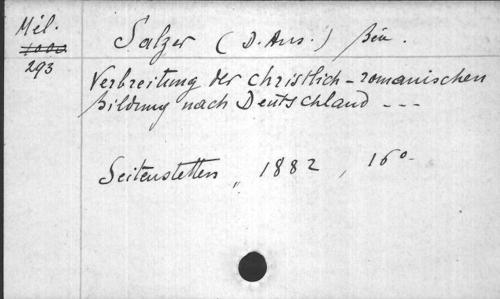 Mél.
1000
293
Salzer (D. Ans.) Bén.
Verbreitung der christlich-romanischen
Bildung nach Deutschland ---
Seitenstetten, 1882, 16°